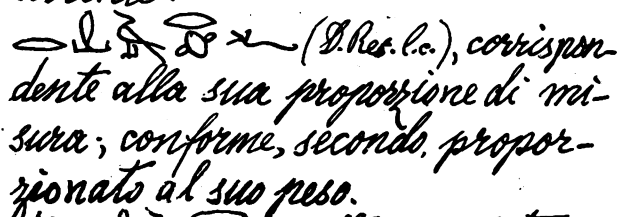 (D. Res. l.c.), corrispon-
dente alla sua proporzione di mi-
sura; conforme, secondo, propor-
zionato al suo peso.